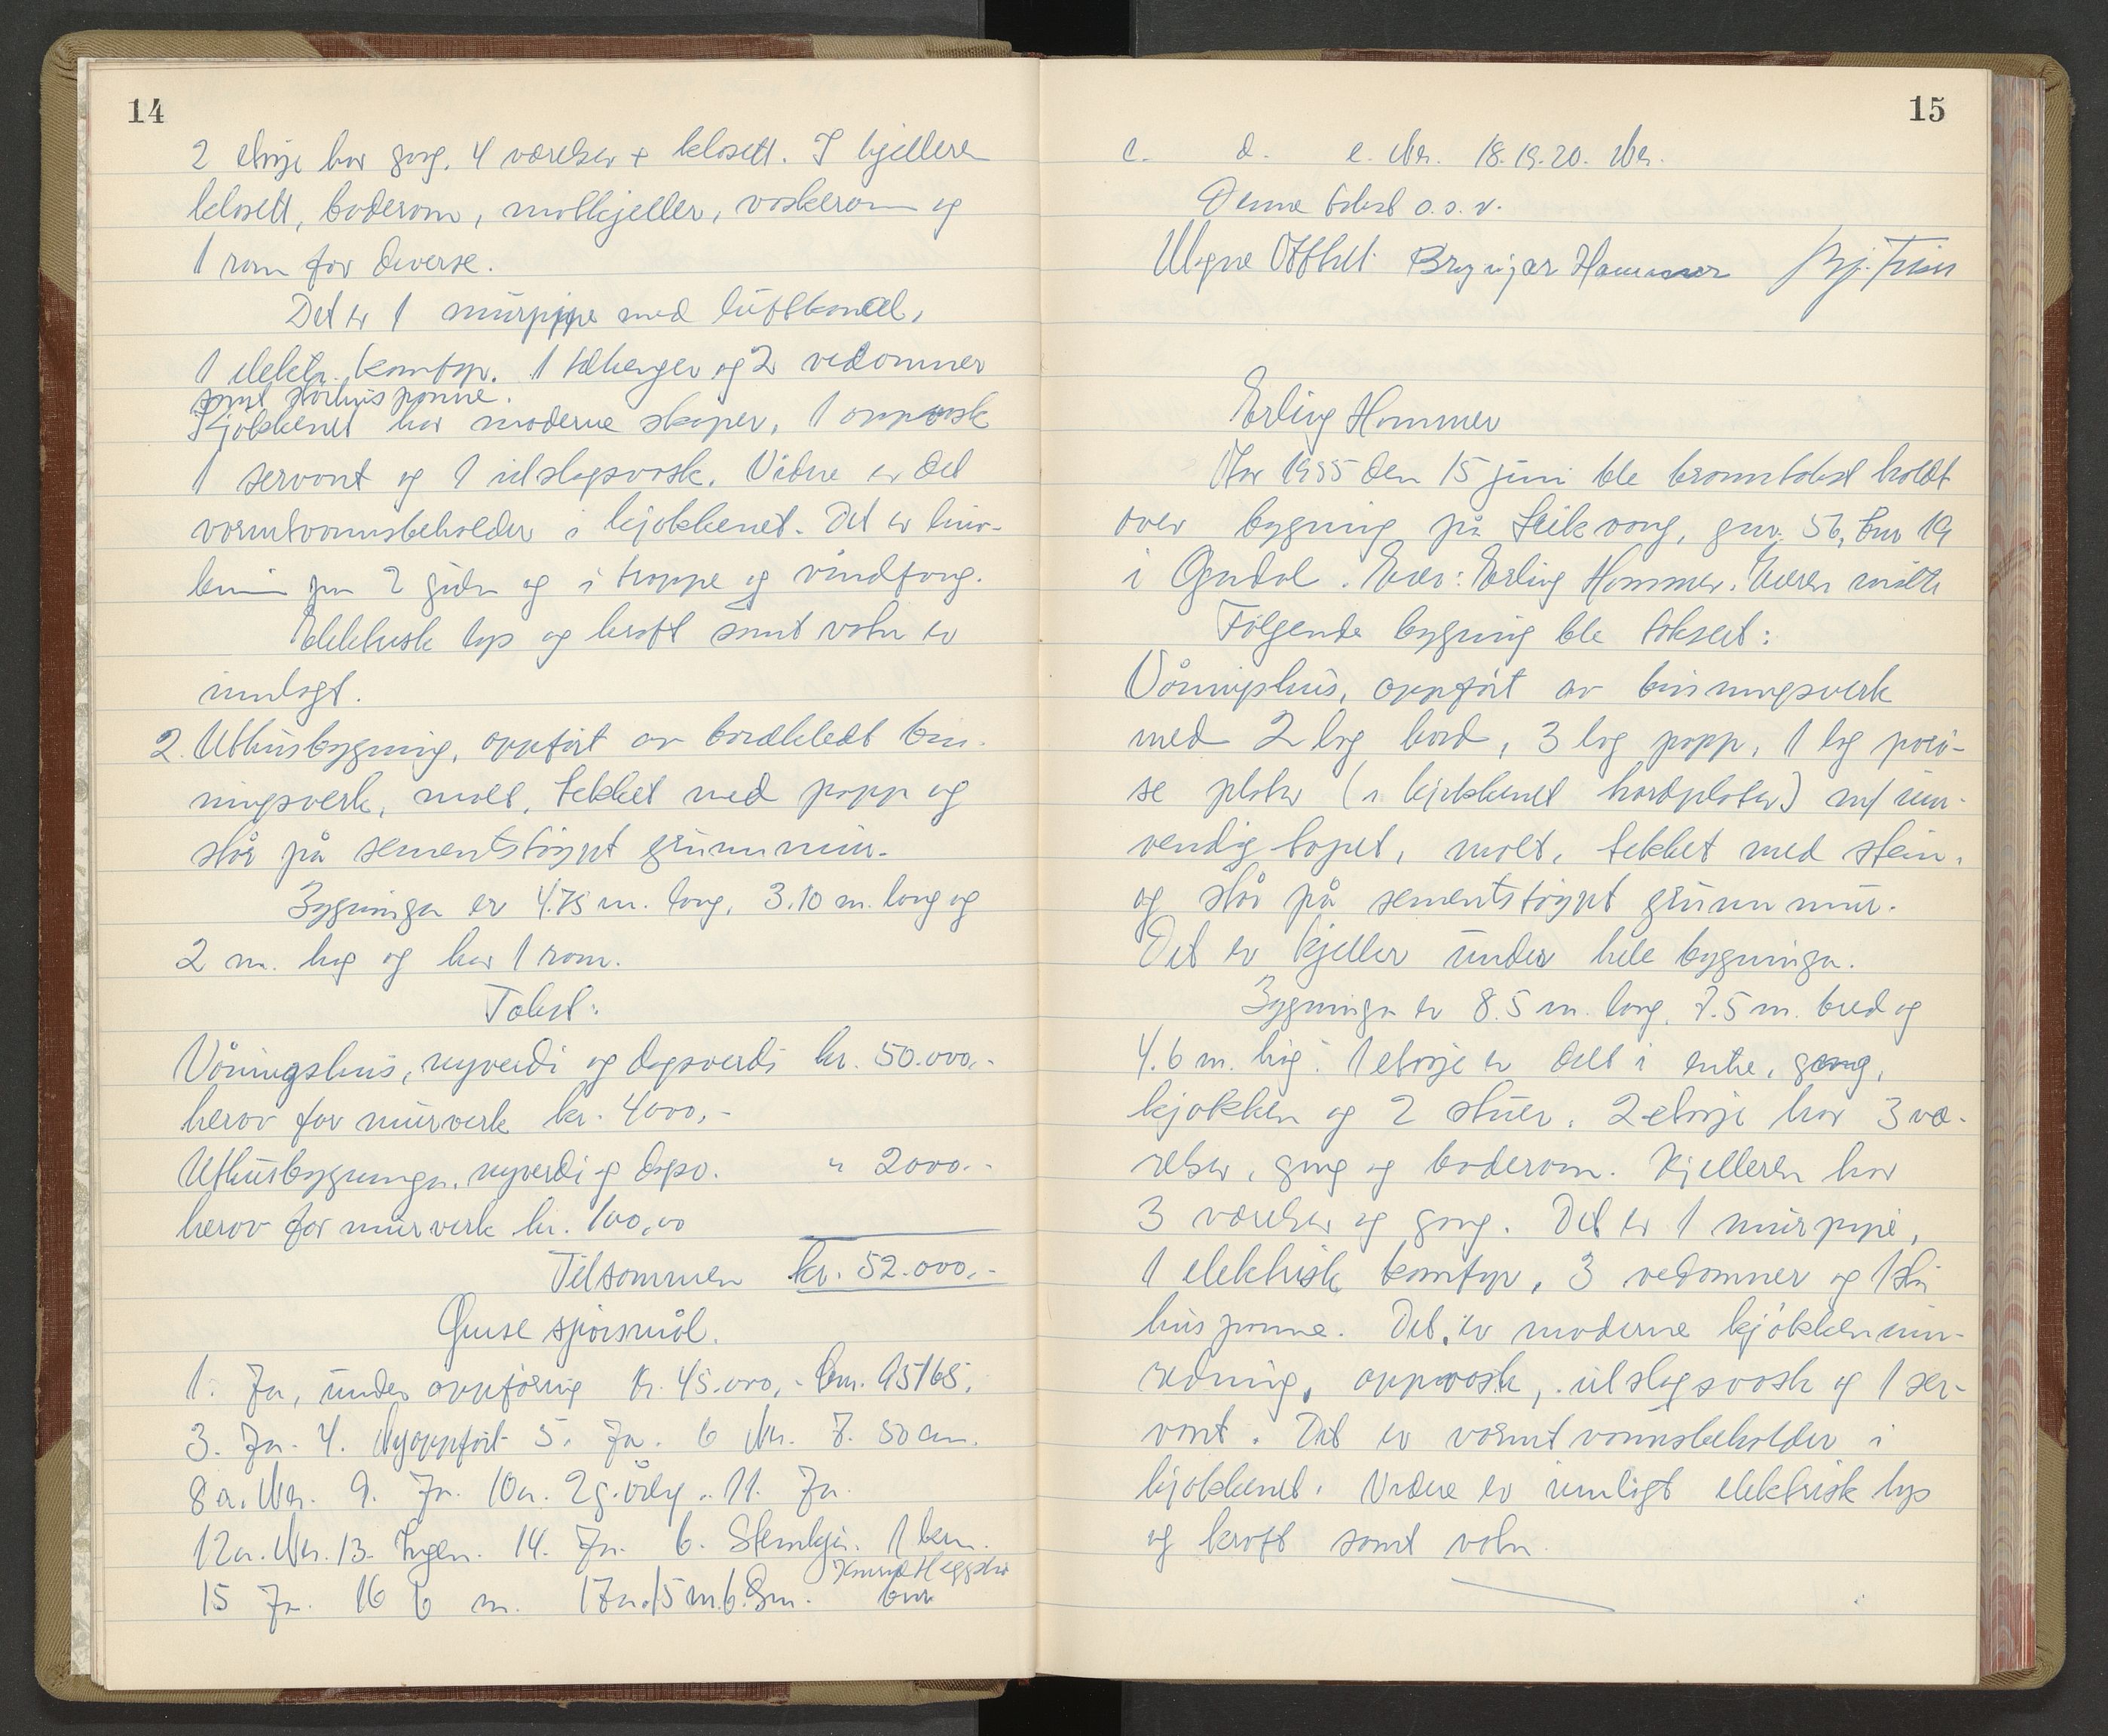 14
2 etasje har gang, 4 værelser + klosett. I kjelleren
klosett, boderom, matkjeller, vaskerom og
1 rom for diverse.
Det er 1 murpipe med luftkanal,
1 elektr. komfyr. 1 og 2 vedovner
samt storhuspanne.
Kjøkkenet har moderne skaper, 1 oppvask
1 servant og 1 utslagsvask. Videre er det
varmtvannsbeholder i kjøkkenet. Det er
på 2 og i trappe og vindfang.
Elektrisk lys og kraft samt vatn er
innlagt.
2. Uthusbygning, oppført av bordkledt bin-
ningsverk, malt, tekket med papp og
står på sementstøypt grunnmur.
Bygninga er 4.75 m. lang, 3.10 m. lang og
2 m. høg og har 1 rom.
Takst:
Våningshus, nyverdi og dagsverdi kr. 50.000,-
herav for murverk kr. 4000,-
Uthusbygninga, nyverdi og dagsv. " 2000.-
herav for murverk kr. 100,00
Tilsammen kr. 52.000.-
spørsmål.
1. Ja, under oppføring kr. 45.000,-
3. Ja. 4. Nyoppført 5. Ja. 6 Nei. 7. 50 cm.
8a. Nei. 9. Ja. 10a. 2 g. årlig. 11. Ja.
12a. Nei. 13. Ingen. 14. Ja. b. Steinkjer. 1 km.
15 Ja. 16 6 m. 17a. 15 m. b. 8 m.
15
c. d. e. Nei. 18. 19. 20. Nei.
Denne takst o.s.v.
Brynjar Hammer
Erling Hammer
År 1955 den 15 juni ble branntakst holdt
over bygning på Leikvang, gnr. 56, bnr 19
i Ogndal. Eier: Erling Hammer. Eieren møtte
Følgende bygning ble taksert:
Våningshus, oppført av binningsverk
med 2 lag bord, 3 lag papp, 1 lag porø-
se plater (i kjøkkenet hardplater) m/ inn-
vendig tapet, malt, tekket med stein,
og står på sementstøypt grunnmur.
Det er kjeller under hele bygninga.
Bygninga er 8.5 m. lang, 7.5 m. bred og
4.6 m. høg. 1 etasje er delt i entre, gang,
kjøkken og 2 stuer. 2 etasje har 3 væ-
relser, gang og boderom. Kjelleren har
3 værelser og gang. Det er 1 murpipe,
1 elektrisk komfyr, 3 vedovner og 1 stor
huspanne. Det er moderne kjøkkeninn-
redning, oppvask, utslagsvask og 1 ser-
vant. Det er varmtvannsbeholder i
kjøkkenet. Videre er innlagt elektrisk lys
og kraft samt vatn.